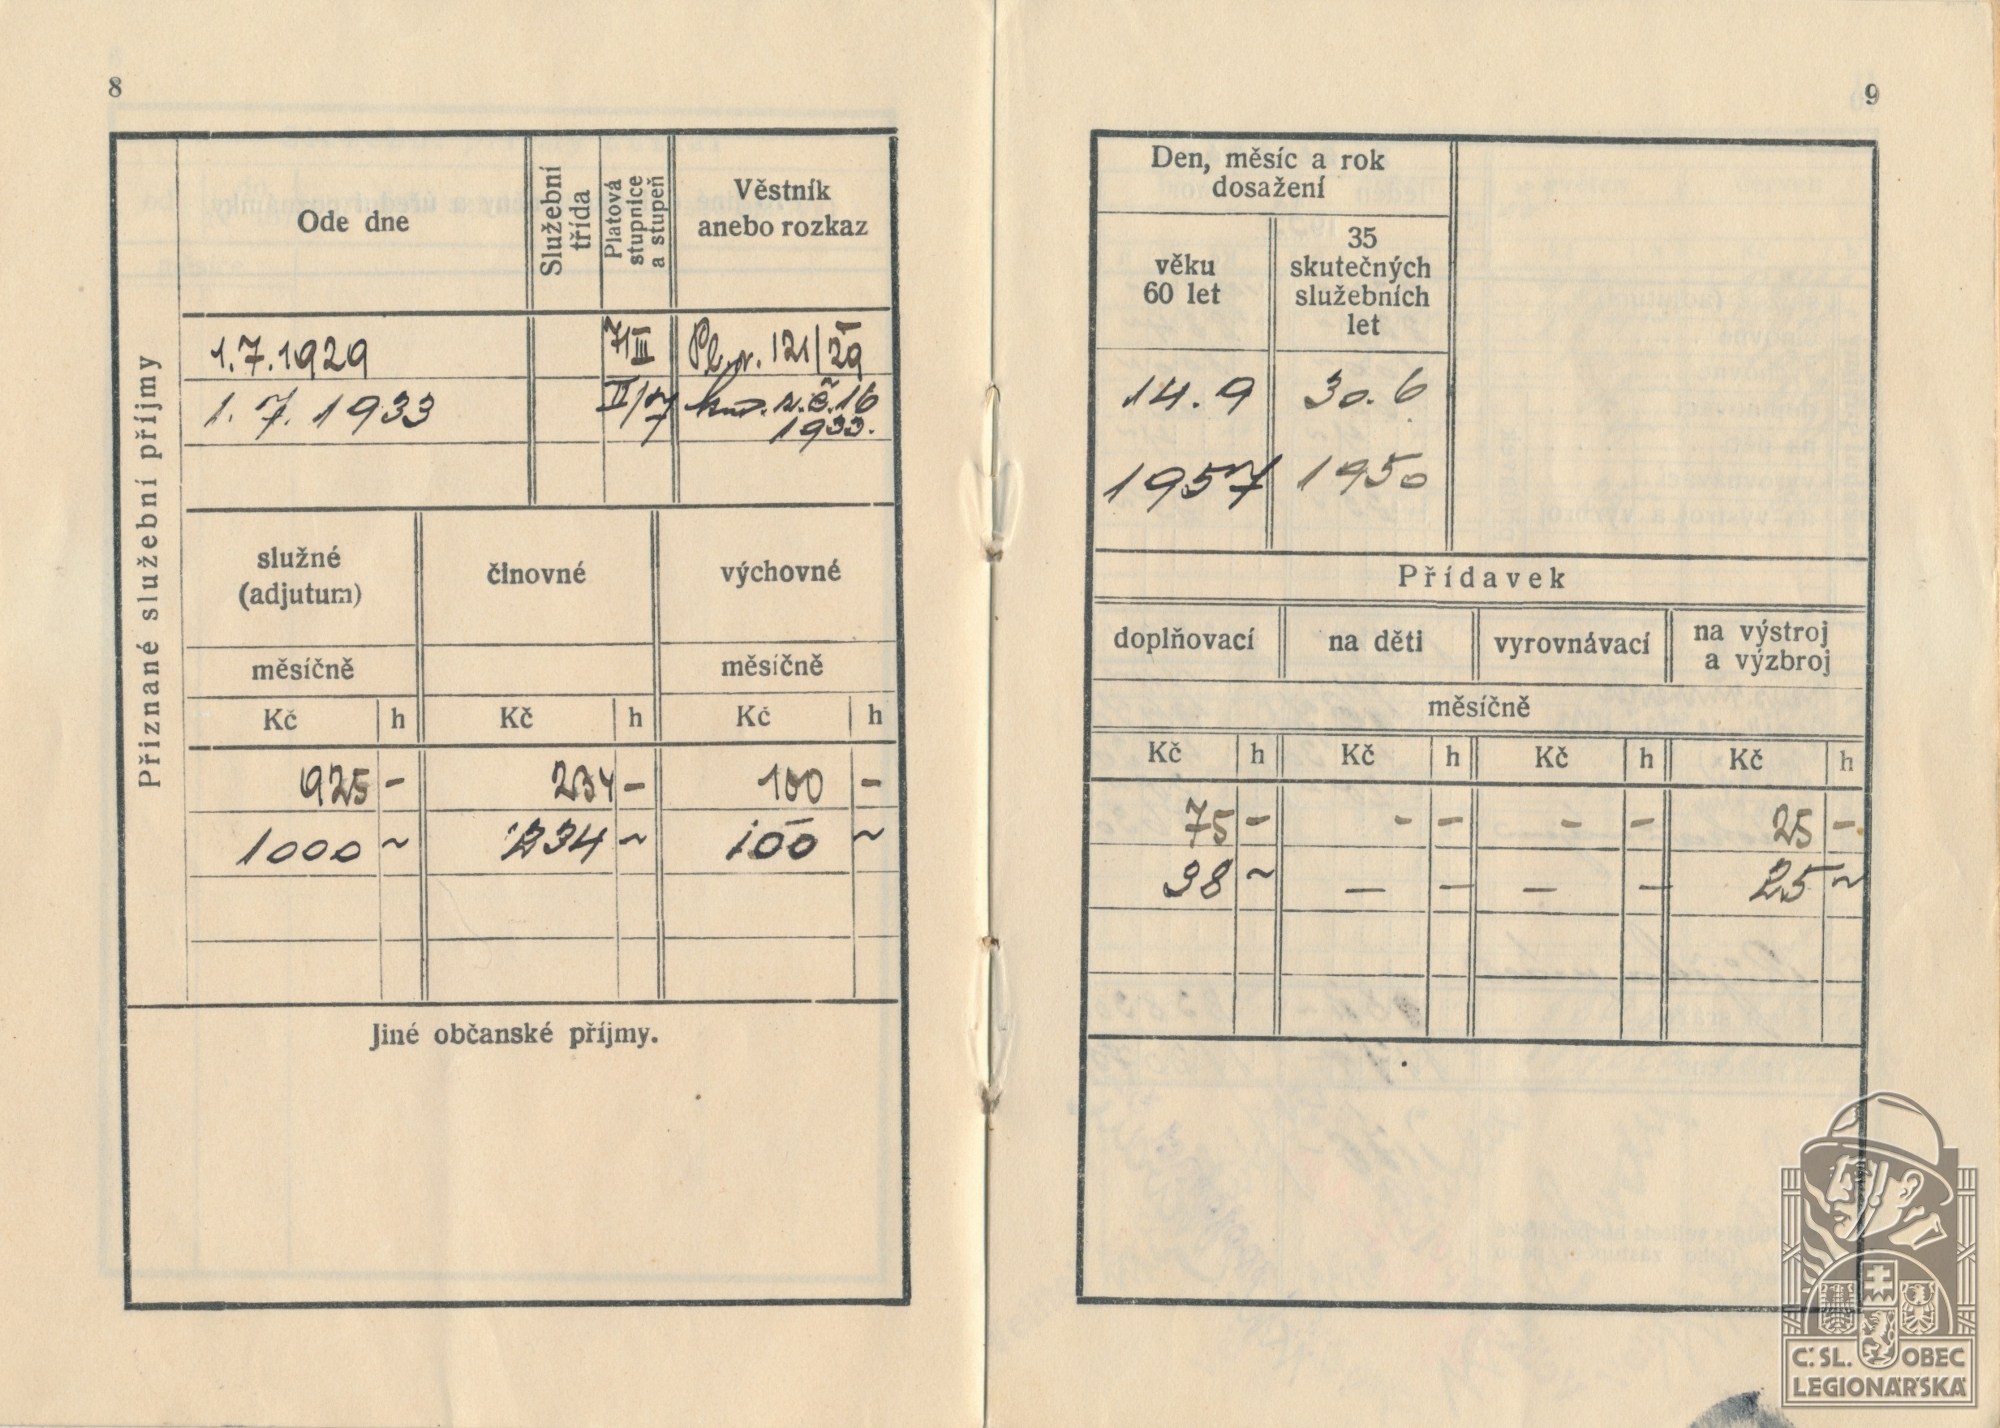 8
Přiznané služební příjmy
Ode dne
Služební
třída
Platová
stupnice
a stupeň
Věstník
anebo rozkaz
1.7.1929 7/III Pl. r. 121/29
1. 7. 1933 II/7 r. č. 16
1933.
služné
(adjutum)
činovné
výchovné
měsíčně měsíčně
Kč h Kč h Kč h
925 – 234 – 100 –
1000 ~ 234 ~ 100 ~
Jiné občanské příjmy.
9
Den, měsíc a rok
dosažení
věku
60 let
35
skutečných
služebních
let
14.9 30.6
1957 1950
Přídavek
doplňovací na děti vyrovnávací na výstroj
a výzbroj
měsíčně
Kč h Kč h Kč h Kč h
75 – – – – – 25 –
38 ~ – – – – 25 ~
Č. SL. OBEC
LEGIONÁŘSKÁ